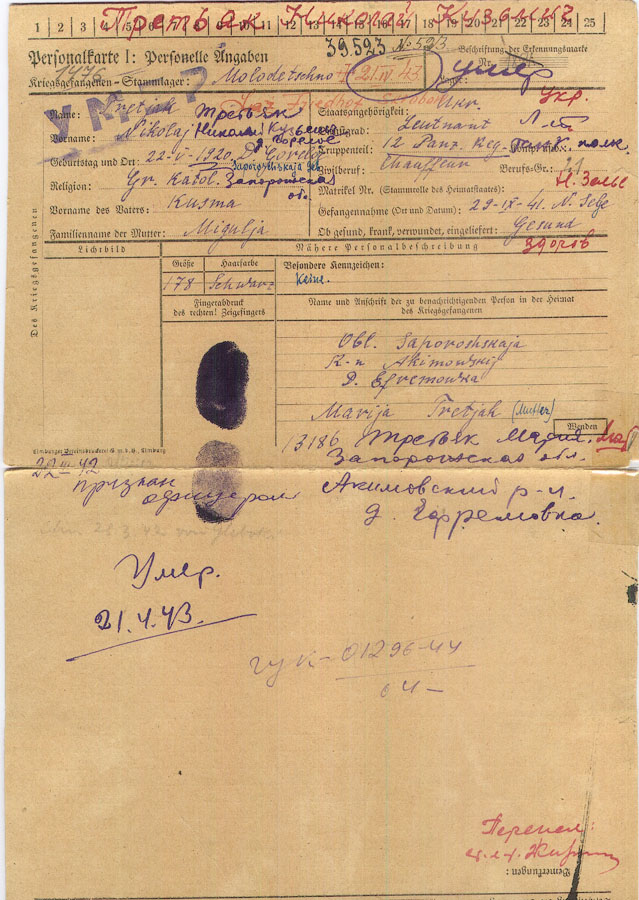 Третьяк Николай Кузьмич
1 2 3 4 5 6 7 8 9 10 11 12 13 14 15 16 17 18 19 20 21 22 23 24 25
39.523 № 523
Personalkarte I: Personelle Angaben
Beschriftung der Erkennungsmarke
1476
Nr.
Kriegsgefangenen-Stammlager: Molodetschno † 21.IV 43
Lager:
умер
УМЕР
Name: Tretjak Третьяк
Staatsangehörigkeit: Ukr. Укр.
Vorname: Nikolaj Николай Кузьмич
Dienstgrad: Leutnant Лейт
д. Горелое
Truppenteil: 12 Panz. Reg. Танков. полк.
Geburtstag und Ort: 22-V-1920, D. Goreloe
Saporoshskaja Obl.
Zivilberuf: Chauffeur Berufs-Gr.: 21
Religion: Gr. Katol. Запорожская обл.
Matrikel Nr. (Stammrolle des Heimatstaates):
Vorname des Vaters: Kusma
Gefangennahme (Ort und Datum): 29-IX-41. N. Selze
Н. Зальце
Familienname der Mutter: Migulja
Ob gesund, krank, verwundet, eingeliefert: Gesund
здоров
Des Kriegsgefangenen
Lichtbild
Nähere Personalbeschreibung
Größe Haarfarbe Besondere Kennzeichen:
178 Schwarz keine.
Fingerabdruck
des rechten! Zeigefingers
Name und Anschrift der zu benachrichtigenden Person in der Heimat
des Kriegsgefangenen
Obl. Saporoshskaja
R-n Akimowskij
D. Efremowka
Marija Tretjak (Mutter)
Wenden
13186 Третьяк Мария. Мать
Запорожская обл.
Limburger Vereinsdruckerei G.m.b.H., Limburg
22 III-42
признан
офицером
Акимовский р-н.
д. Ефремовка.
Умер.
21.4.43.
гук-01296-44
04-
Перевел:
Bemerkungen: